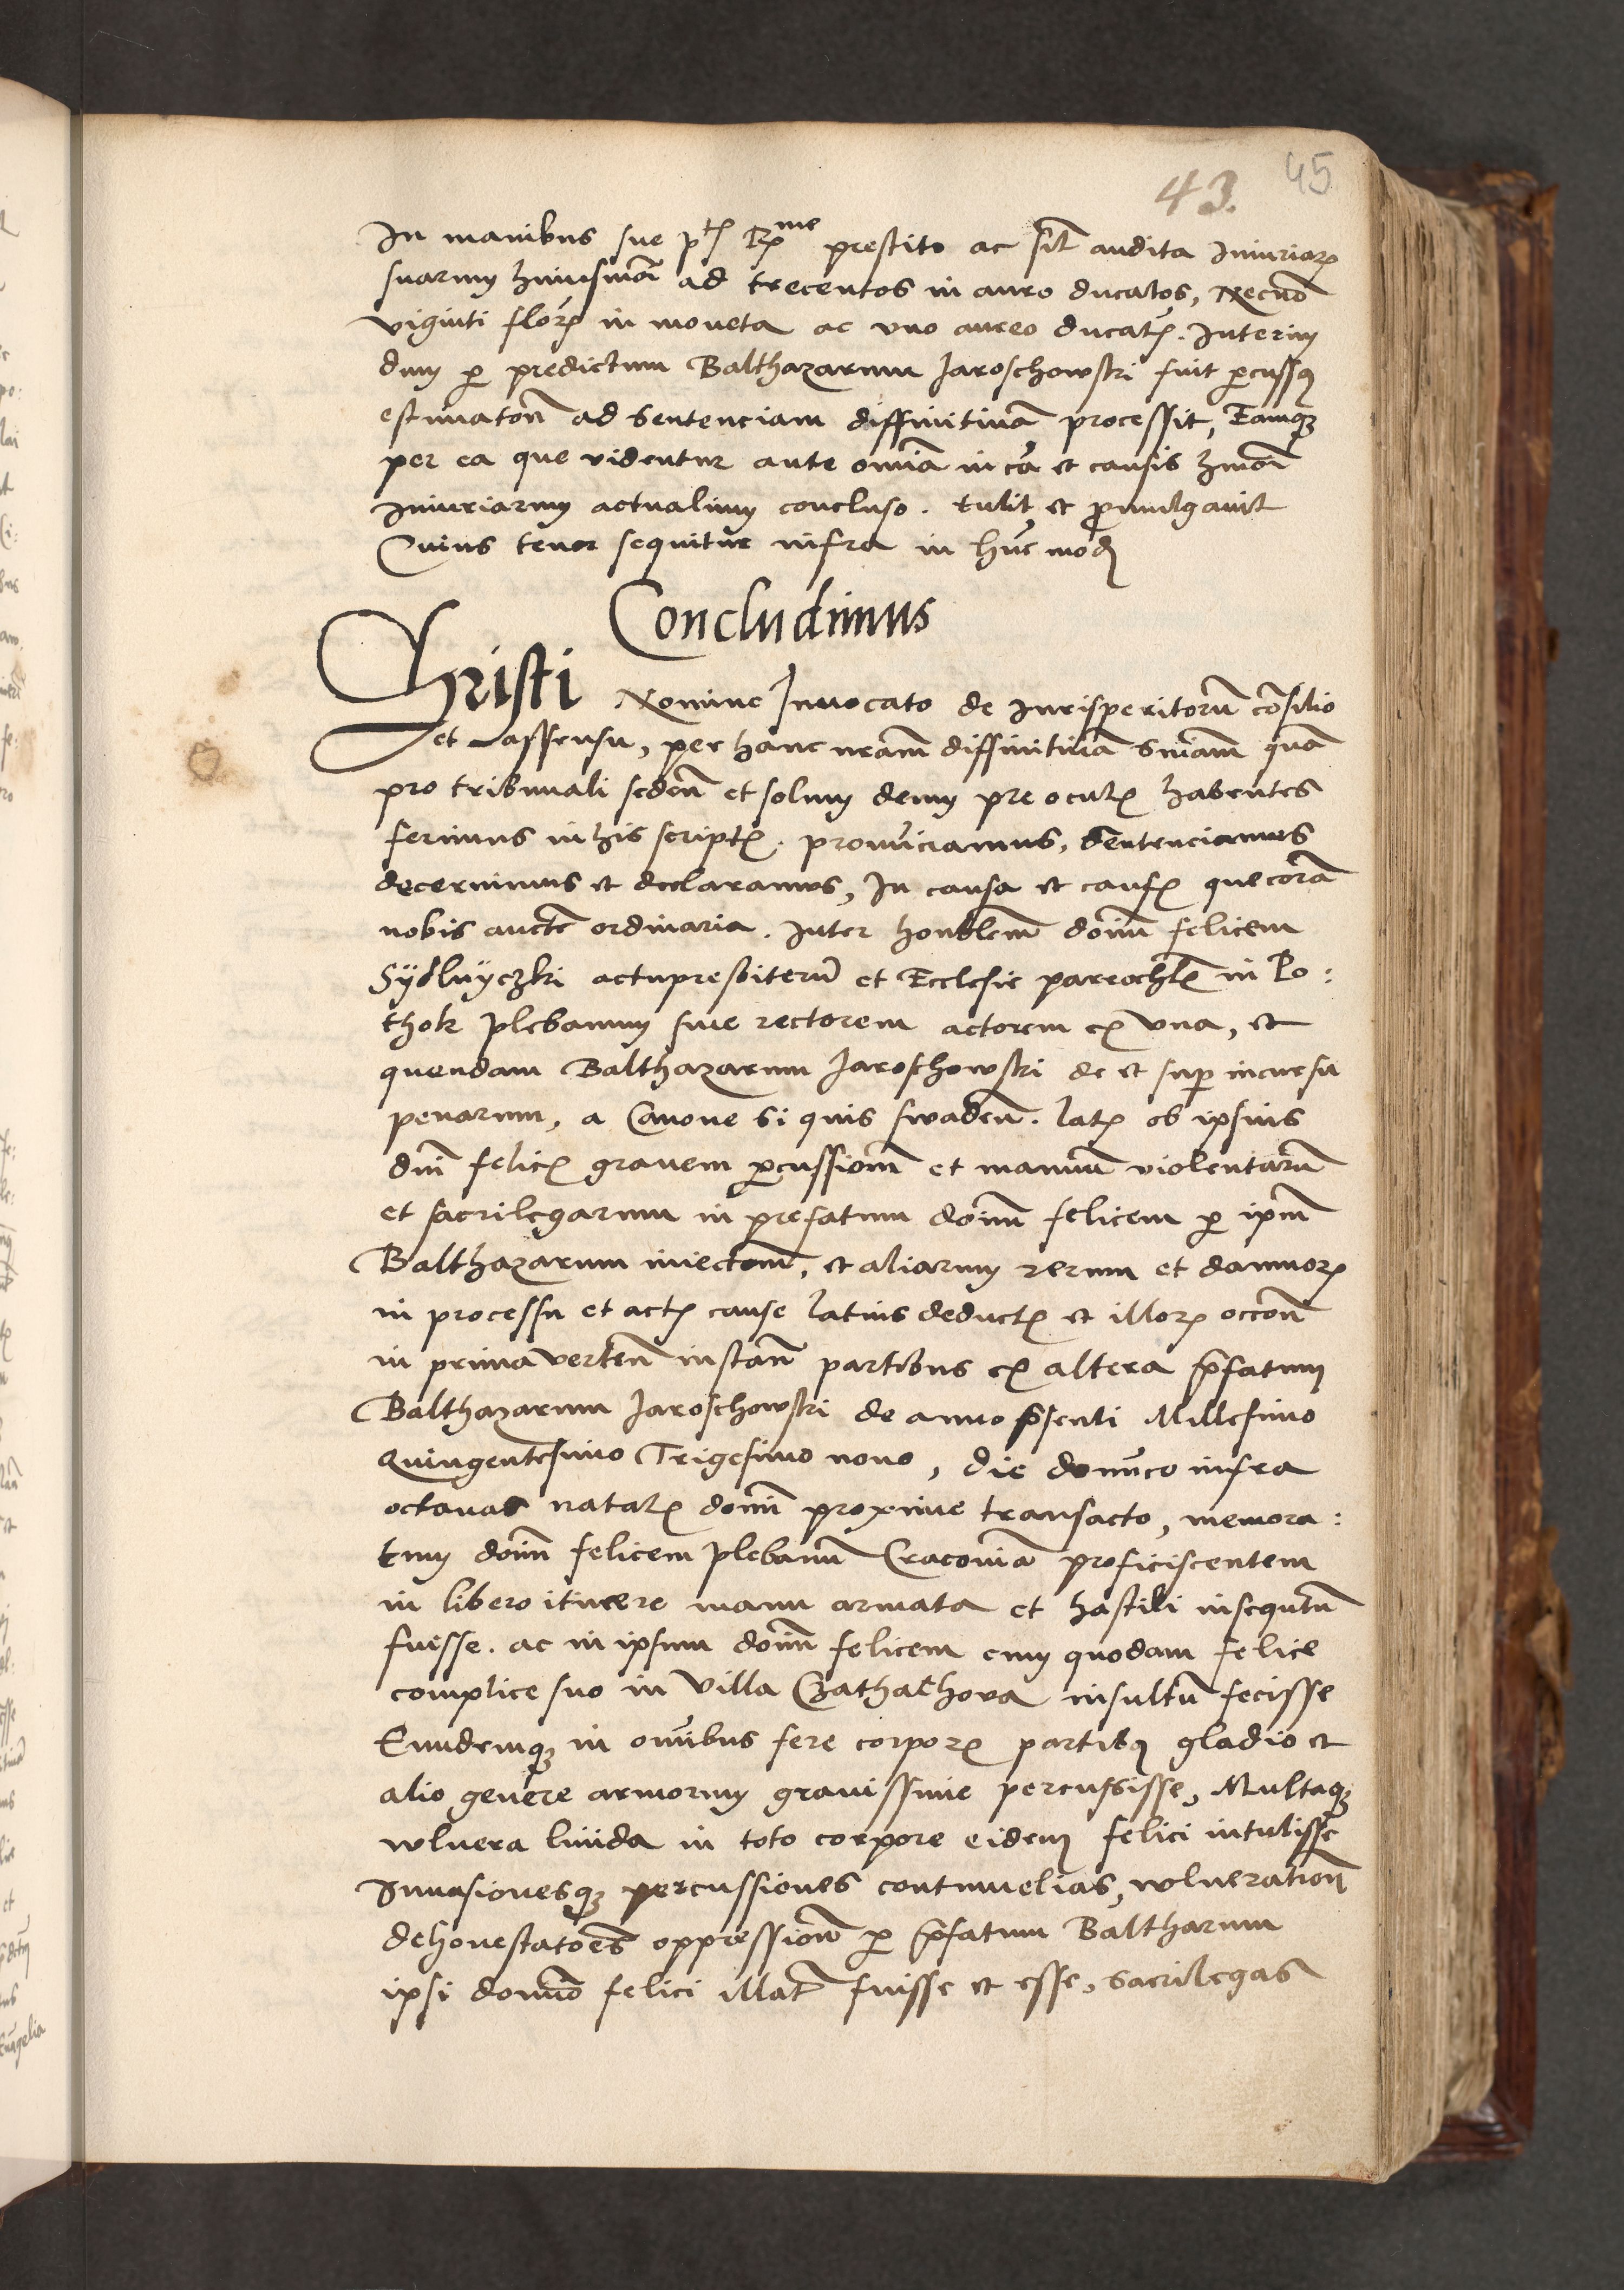 43. 45
In manibus sue p.tis R.me prestito ac sil̃ audita Iniuriar̃
suarum huiusmõi ad trecentos in auro ducatos, Necnõ
viginti flor̃ in moneta ac vno aureo ducat̃. Interim
dum p̱ predictum Balthazarum Jaroschowski fuit p̱cuss9
estimatoñ ad sentenciam diffinitiuã processit, Eamq3
per ea que videntur ante om̃ia in cã et causis hmõi
Iniuriarum actualium concluso. tulit et p̱mulgauit
Cuius tenor sequitur infra in hũc modũ
Concludimus
Christi Nomine Inuocato de Iurisperitorũ cõsilio
et assensu, per hanc nr̃am diffinitiuã sniãm quã
pro tribunali sedeñ et solum deum pre ocul̃ habentes
ferimus in his script̃. pronũciamus, sentenciamus
decernimus et declaramus, In causa et caus̃ que corã
nobis aucte ordinaria. Inter honblem̃ dom̃ felicem
Sydluyczki actupresbiterũ et Ecclesie parrochl̃ in Po:
thok plebanum siue rectorem actorem ex vna, et
quendam Balthazarum Jaroschowski de et sup̱ incursu
penarum, a Canone si quis suadeñ. lat̃ ob ipsius
dñi felic̃ grauem p̱cussioñ et manuũ violentarũ
et sacrilegarum in prefatum dom̃ felicem p̱ ipm̃
Balthazarum iniectoñ, et aliarum rerum et damnor̃
in processu et act̃ cause latius deduct̃ et illor̃ occoñ
in prima verteñ instañ partibus ex altera p̃fatum
Balthazarum Jaroschowski de anno p̃senti Millesimo
Quingentesimo Trigesimo nono, die domĩco infra
octauas natal̃ domĩ proxime transacto, memora:
tum dom̃ felicem plebanũ Cracouiã proficiscentem
in libero itinere manu armata et hastili insequtũ
fuisse. ac in ipsum dom̃ felicem cum quodam felice
complice suo in villa Czathachova insultũ fecisse
Eundemq3 in omĩbus fere corpor̃ partib9 gladio et
alio genere armorum grauissime percussisse, Multaq3
wlnera liuida in toto corpore eidem felici intulisse
Inuasionesq3 percussiones contumelias, wlneratioñ
dehonestatoẽs oppressioñ p̱ p̃fatum Baltharum
ipsi domĩo felici illat̃ fuisse et esse, sacrilegas